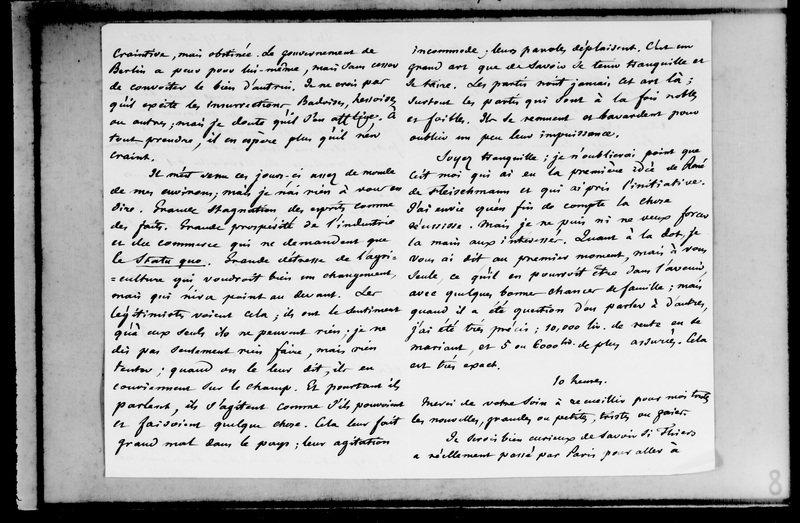 craintive, mais obstinée. Le gouvernement de
Berlin a peur pour lui-même, mais sans cesser
de convoiter le bien d'autrui. Je ne crois pas
qu'il excite les insurrections Badoises, hessoises
ou autres; mais je doute qu'il s'en afflige. À
tout prendre, il en espère plus qu'il n'en
craint.
Il m'est venu ces jours-ci assez de monde
de mes environs; mais je n'ai rien à vous en
dire. Grande stagnation des esprits comme
des faits. Grande prospérité de l'industrie
et du commerce qui ne demandent que
le Statu quo. Grande détresse de l'agri-
=culture qui voudroit bien un changement,
mais qui n'ira point au devant. Les
légitimistes voient cela; ils ont le sentiment
qu'à eux seuls ils ne peuvent rien; je ne
dis pas seulement rien faire, mais rien
tenter; quand on le leur dit, ils en
conviennent sur le champ. Et pourtant ils
parlent, ils s'agitent comme s'ils pouvoient
et faisoient quelque chose. Cela leur fait
grand mal dans le pays; leur agitation
incommode; leurs paroles déplaisent. C'est un
grand art que de savoir se tenir tranquille et
se taire. Les partis n'ont jamais cet art là;
surtout les partis qui sont à la fois nobles
et faibles. Ils se remuent et bavardent pour
oublier un peu leur impuissance.
Soyez tranquille; je n'oublierai point que
c'est moi qui ai eu la première idée de René
de Fleischmann et qui ai pris l'initiative.
J'ai envie qu'en fin de compte la chose
réussisse. Mais je ne puis ni ne veux forcer
la main aux intéressés. Quant à la dot, je
vous ai dit au premier moment, mais à vous
seule, ce qu'il en pourroit être dans l'avenir,
avec quelques bonnes chances de famille; mais
quand il a été question d'en parler à d'autres,
j'ai été très précis; 10,000 liv. de rente en se
mariant, et 5 ou 6000 liv. de plus assurées. Cela
est très exact.
10 heures.
Merci de votre soin à recueillir pour moi toutes
les nouvelles, grandes ou petites, tristes ou gaies.
Je serois bien curieux de savoir si Thiers
a réellement passé par Paris pour aller à
8